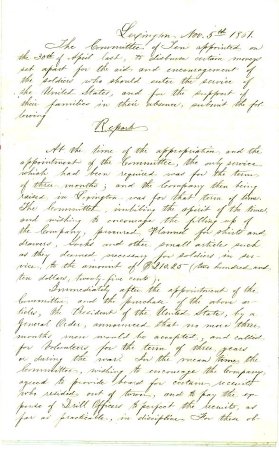 Lexington Nov. 5th 1861.
The Committee of Ten appointed on
the 30th of April last, to disburse certain money
set apart for the aid and encouragement of
the soldiers who should enter the service of
the United States, and for the support of
their families in their absence, submit the fol
lowing
Report
At the time of the appropriation and the
appointment of the Committee, the only service
which had been required was for the term
of three months; and the Company then being
raised in Lexington was for that term of time.
The Committee, imbibing the spirit of the times,
and wishing to encourage the filling up of
the Company, procured flannel for shirts and
drawers, socks and other small articles such
as they deemed necessary for soldiers in ser-
vice, to the amount of $210.25 (two hundred and
ten dollars, twenty five cents.
Immediately after the appointment of the
Committee, and the purchase of the above ar-
ticles, the President of the United States, by a
General Order, announced that no more three
months men would be accepted, and called
for Volunteers for the term of three years
or during the war. In the mean time the
Committee, wishing to encourage the Company,
agreed to provide board for certain recruits
who resided out of town, and to pay the ex-
pense of Drill Officers to perfect the recruits, as
far as practicable, in discipline. For these ob-